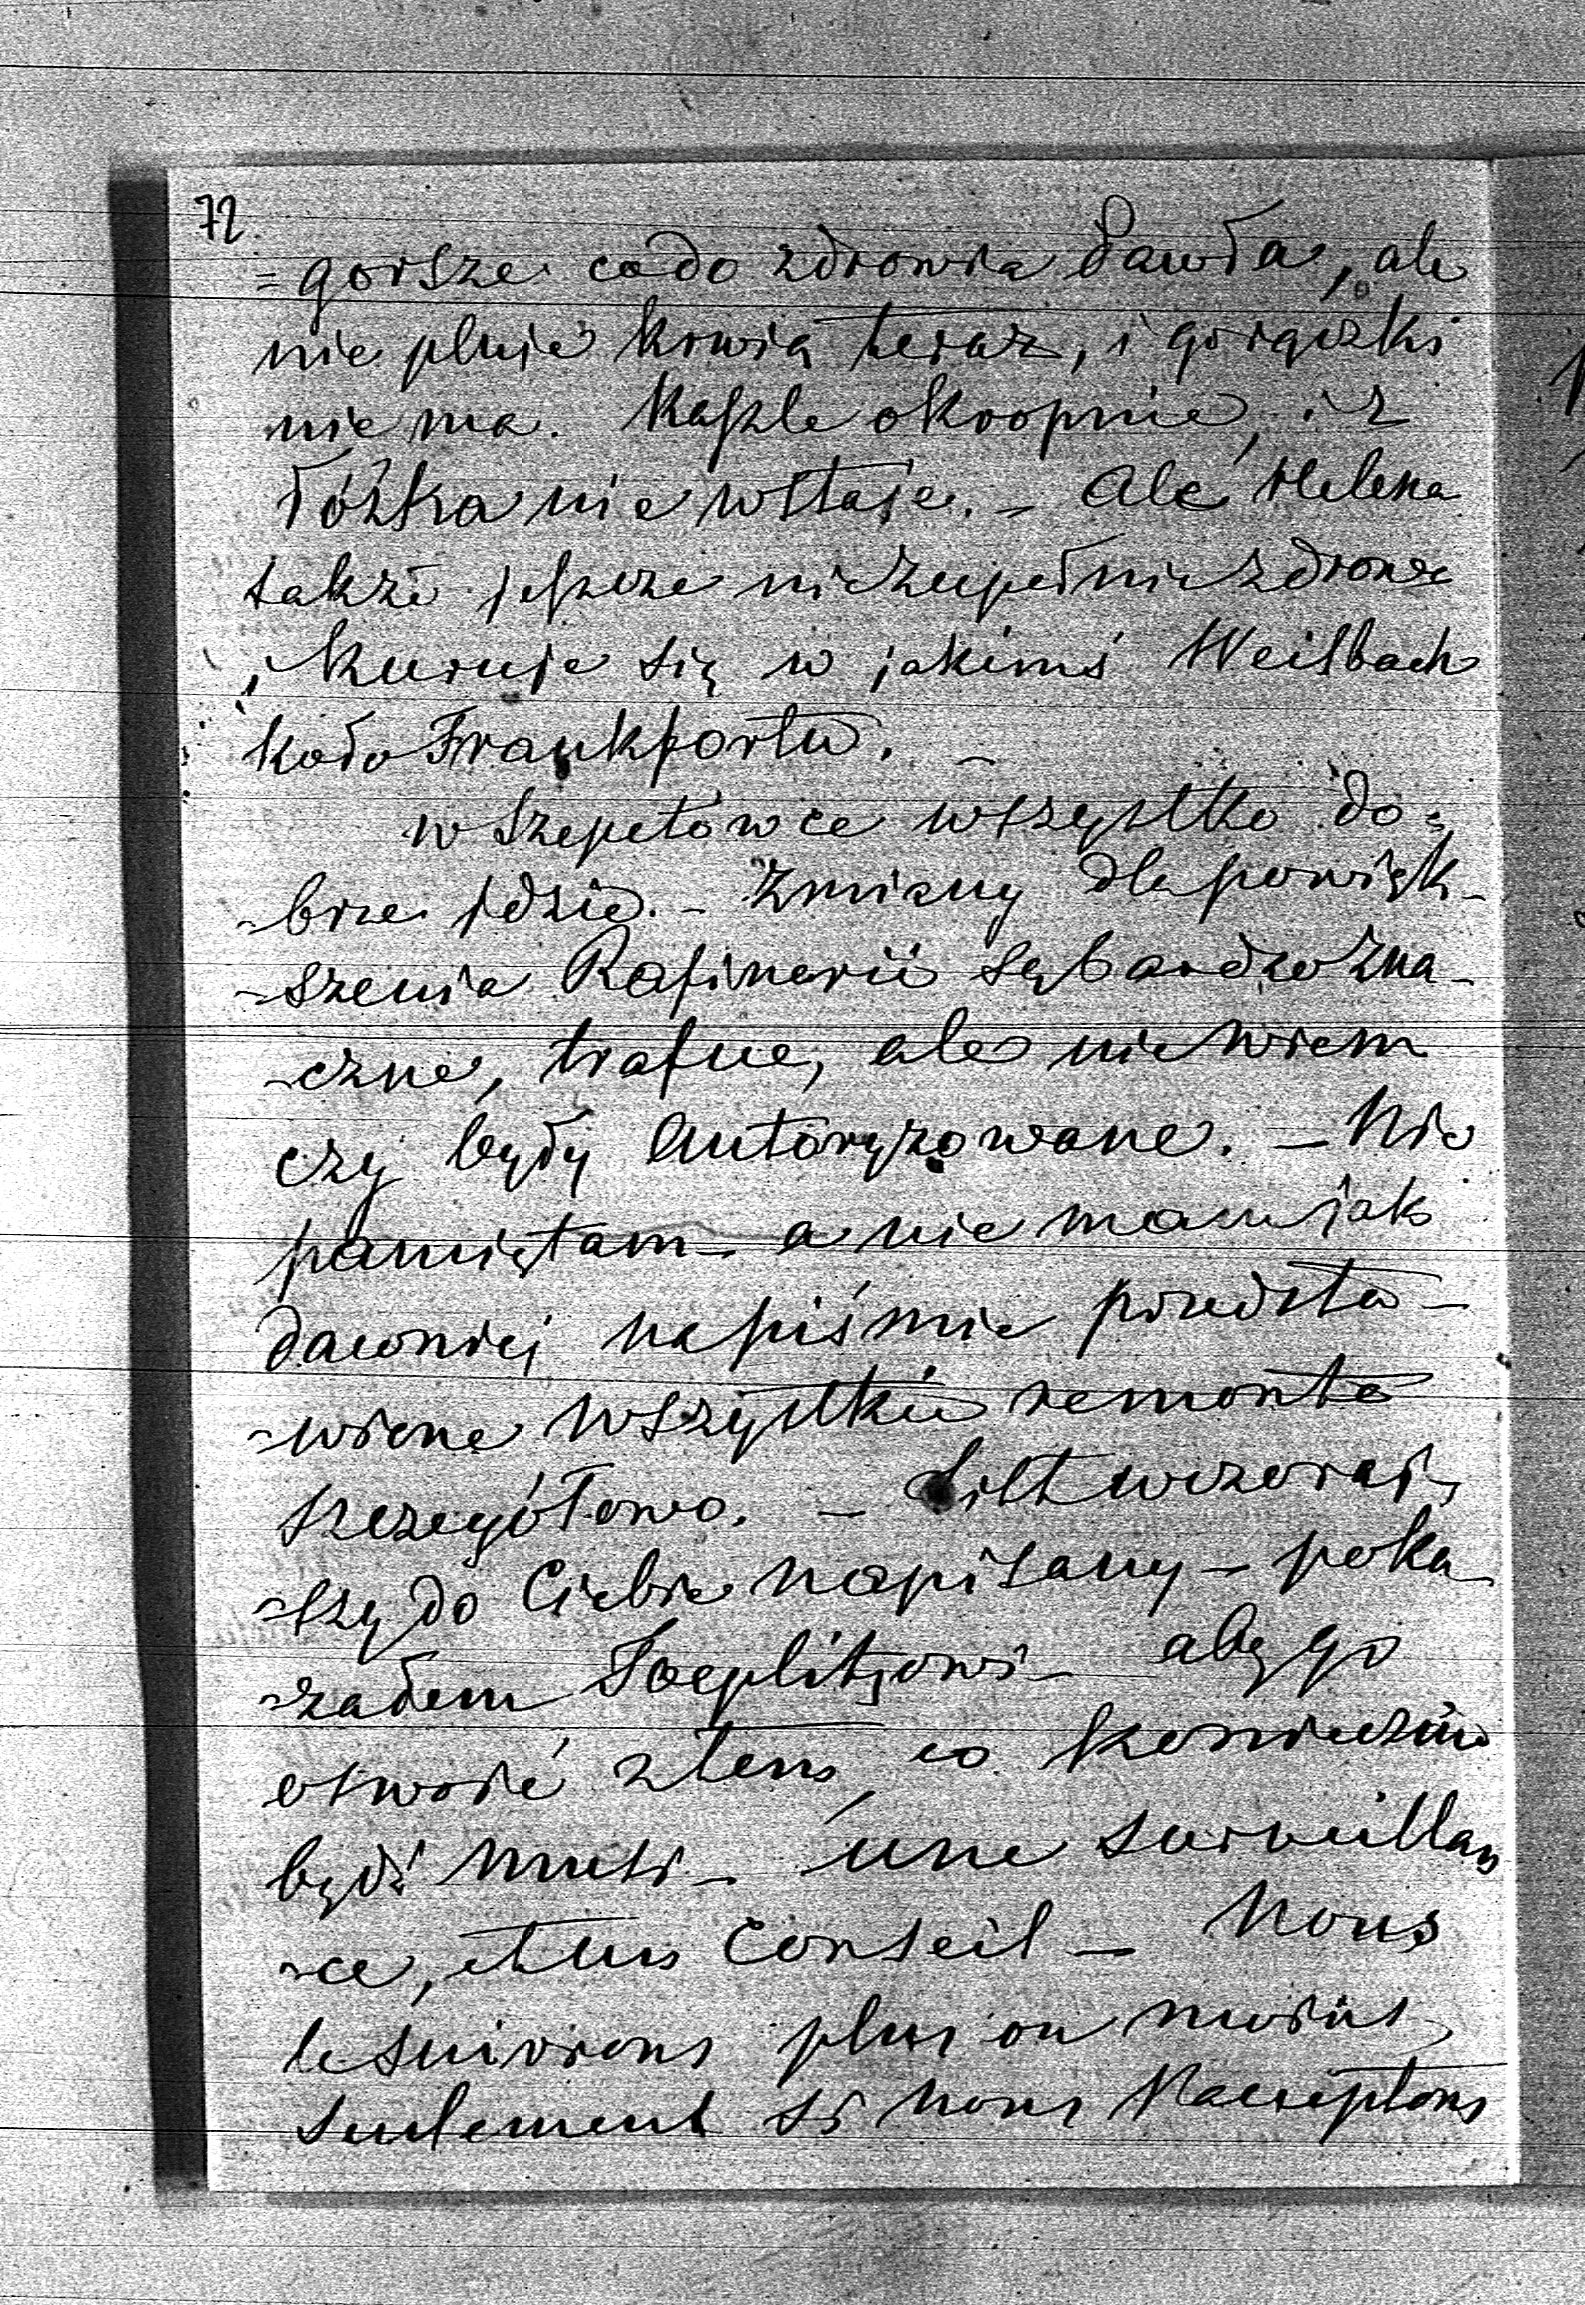 72
= gorsze co do zdrowia Pawła, ale
nie pluje krwią teraz, i gorączki
nie ma. Kaszle okropnie, i z
łóżka nie wstaje. – Ale Helena
także jeszcze niezupełnie zdrowa
i kuruje się w jakimś Weilbach
koło Frankfortu. –
w Szepetówce wszystko do=
-brze idzie. – Zmiany dla powięk-
-szenia Rafinerii są bardzo zna-
-czne, trafne, ale nie wiem
czy były autoryzowane. – Nie
pamiętam – a nie mam jak
dawniej na piśmie przedsta-
-wione wszystkie remonta
szczegółowo. – List wczoraj-
-szy do Ciebie napisany – poka-
-załem Toeplitzowi – aby go
oswoić z tem, co koniecznie
bydź musi – une surveillan
-ce, et un Conseil – Nous
le suivrons plus ou moins,
seulement si nous l'acceptons